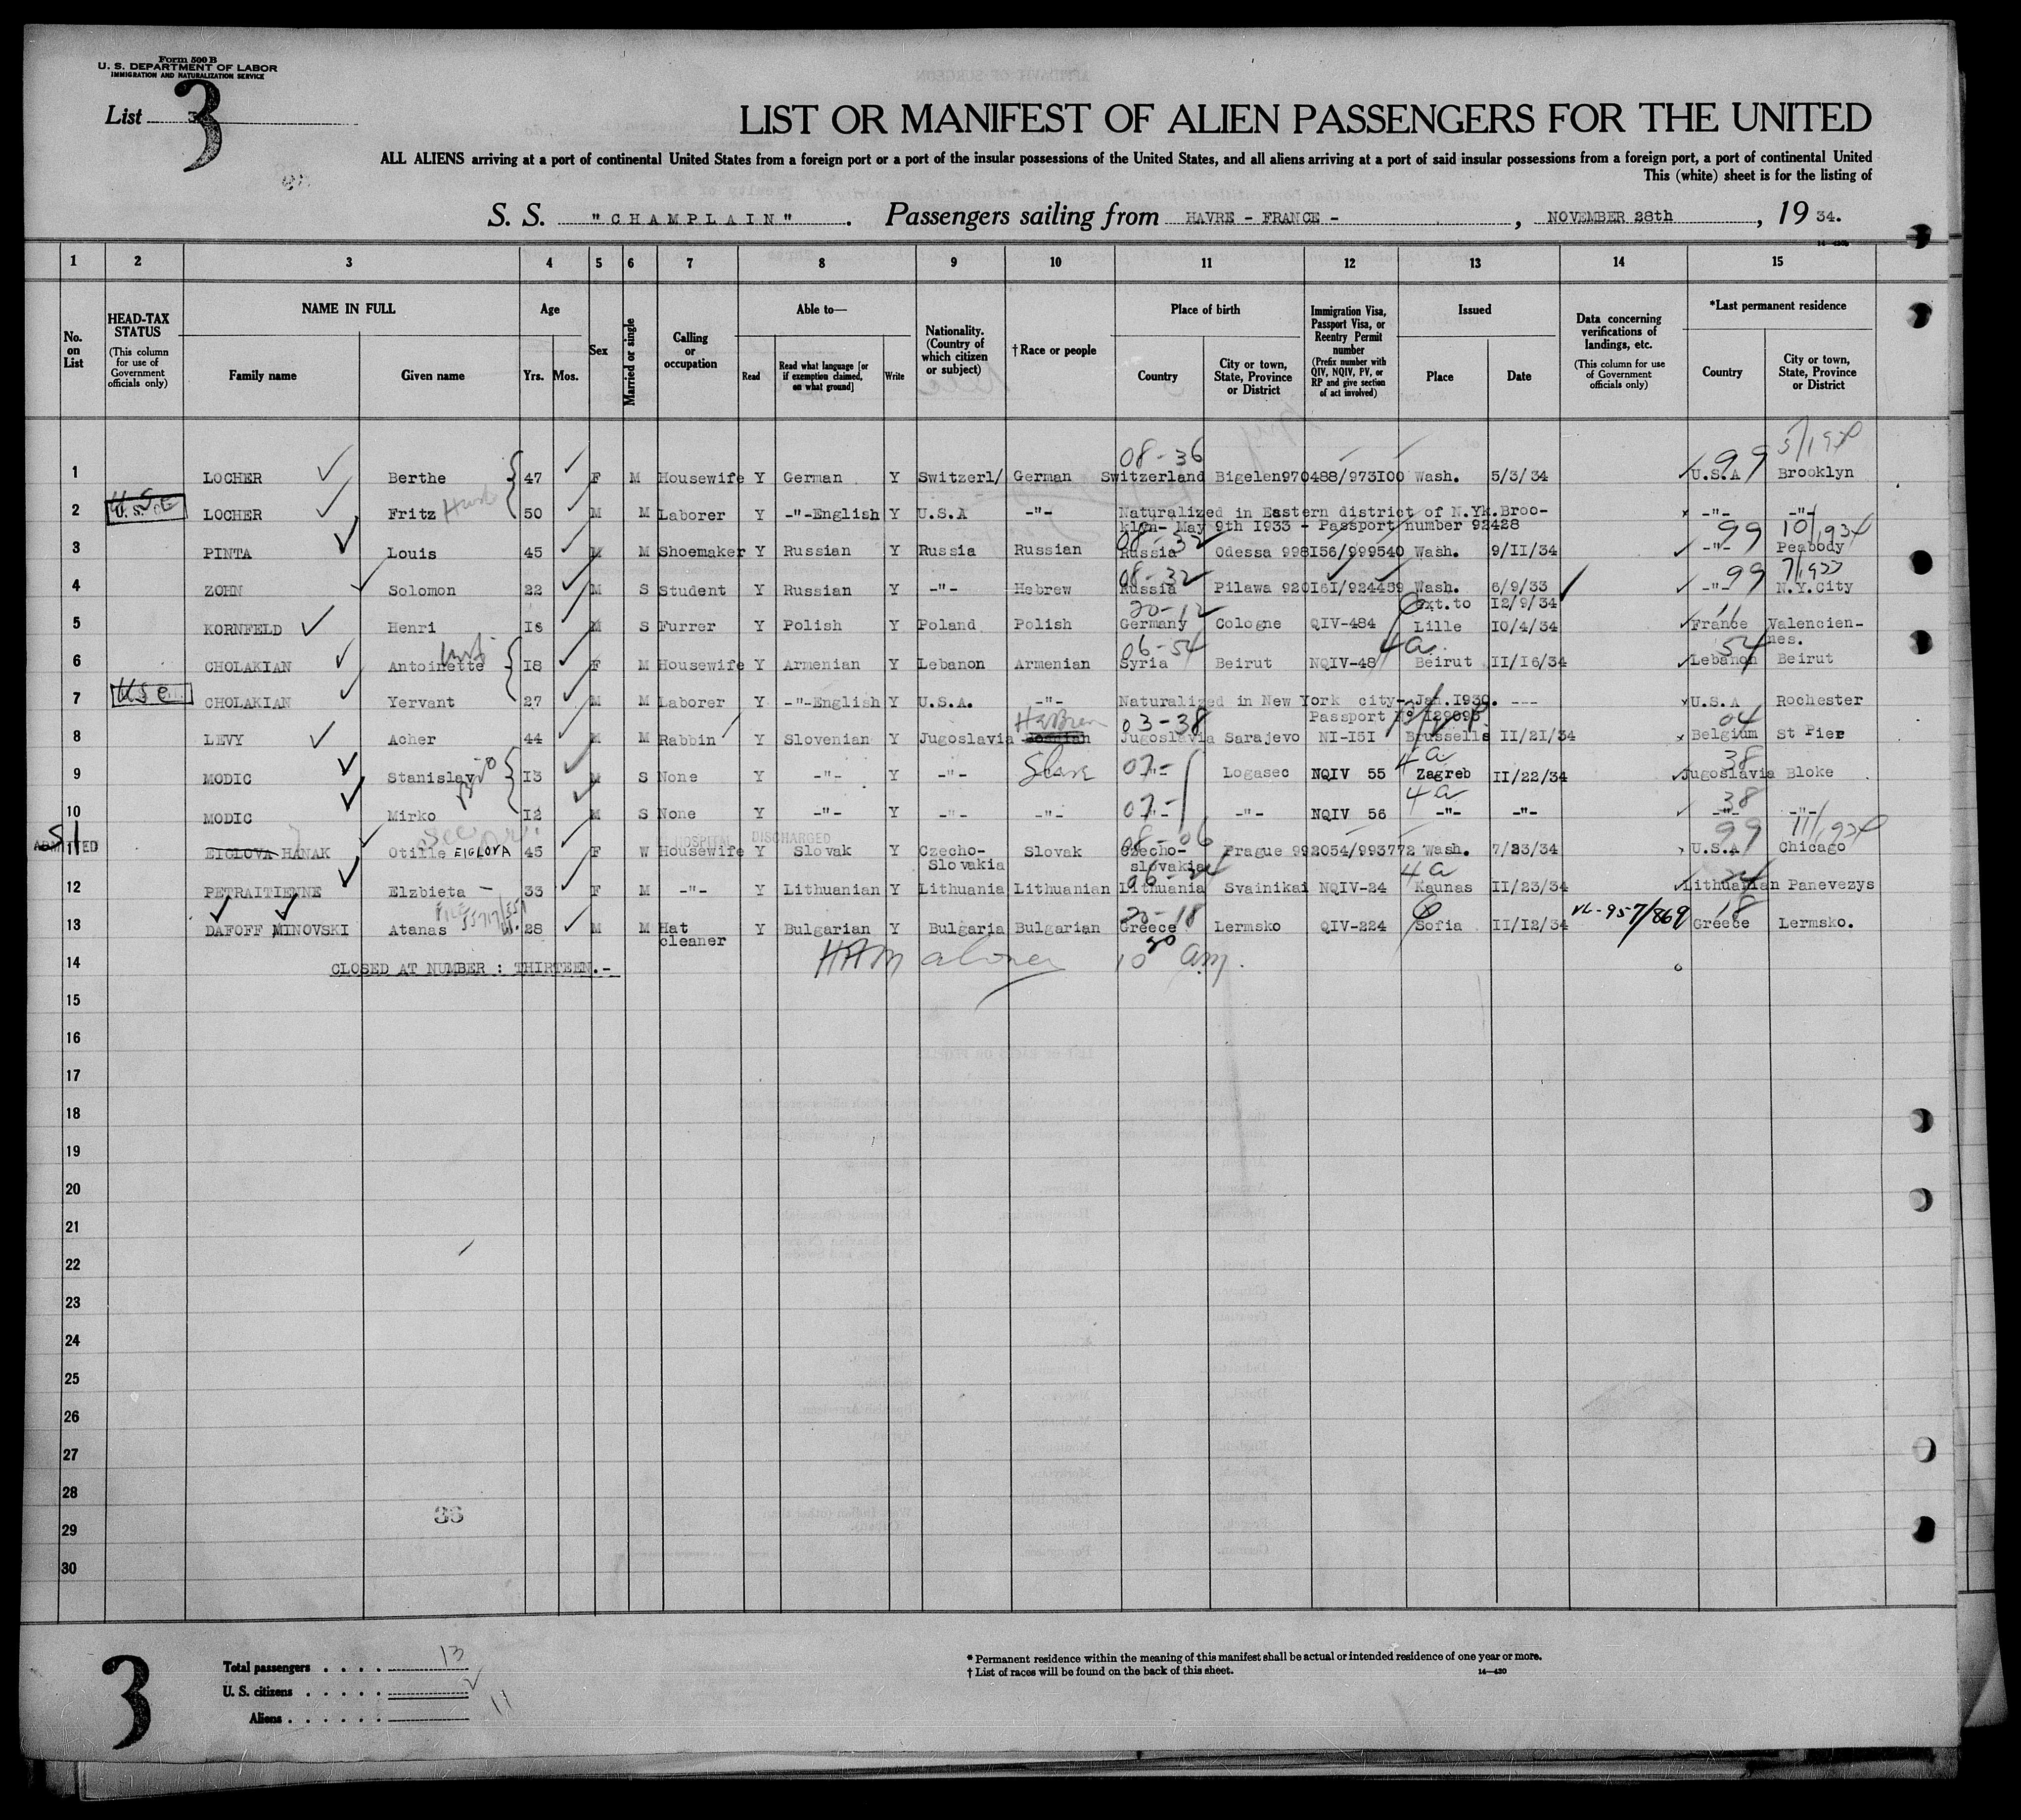 Form 500 B
U. S. DEPARTMENT OF LABOR
IMMIGRATION AND NATURALIZATION SERVICE
List 3
3
LIST OR MANIFEST OF ALIEN PASSENGERS FOR THE UNITED
ALL ALIENS arriving at a port of continental United States from a foreign port or a port of the insular possessions of the United States, and all aliens arriving at a port of said insular possessions from a foreign port, a port of continental United
This (white) sheet is for the listing of
S. S. "CHAMPLAIN". Passengers sailing from HAVRE - FRANCE - , NOVEMBER 28th , 19 34.
1 2 3 4 5 6 7 8 9 10 11 12 13 14 15
No. on List
HEAD-TAX STATUS (This column for use of Government officials only)
NAME IN FULL
Family name Given name
Age
Yrs. Mos.
Sex
Married or single
Calling or occupation
Able to—
Read Read what language [or if exemption claimed, on what ground] Write
Nationality. (Country of which citizen or subject)
†Race or people
Place of birth
Country City or town, State, Province or District
Immigration Visa, Passport Visa, or Reentry Permit number (Prefix number with QIV, NQIV, PV, or RP and give section of act involved)
Issued
Place Date
Data concerning verifications of landings, etc. (This column for use of Government officials only)
*Last permanent residence
Country City or town, State, Province or District
08-36 99 5/1934
1 LOCHER Berthe 47 F M Housewife Y German Y Switzerl/ German Switzerland Bigelen 970488/973I00 Wash. 5/3/34 U.S.A Brooklyn
2 U.S.C LOCHER Fritz Husb 50 M M Laborer Y -"-English Y U.S.A -"- Naturalized in Eastern district of N.Yk.Broo- -"- -"-
klyn- May 9th I933 - Passport number 92428
08-32 99 10/1934
3 PINTA Louis 45 M M Shoemaker Y Russian Y Russia Russian Russia Odessa 998I56/999540 Wash. 9/II/34 -"- Peabody
08-32 99 7/1933
4 ZOHN Solomon 22 M S Student Y Russian Y -"- Hebrew Russia Pilawa 920I6I/924459 Wash. 6/9/33 -"- N.Y.City
ext.to I2/9/34
20-12 11
5 KORNFELD Henri I8 M S Furrer Y Polish Y Poland Polish Germany Cologne QIV-484 Lille IO/4/34 France Valencien-
nes.
06-54 4a 54
6 CHOLAKIAN Antoinette wife I8 F M Housewife Y Armenian Y Lebanon Armenian Syria Beirut NQIV-48 Beirut II/I6/34 Lebanon Beirut
7 U S C CHOLAKIAN Yervant 27 M M Laborer Y -"-English Y U.S.A. -"- Naturalized in New York city-Jan.I930. --- U.S.A Rochester
Passport N° I29095
Hebrew 03-38 04
8 LEVY Acher 44 M M Rabbin Y Slovenian Y Jugoslavia Jugoslavia Sarajevo NI-I5I Brussells II/2I/34 Belgium St Pier
4a 38
9 MODIC Stanislav bro I3 M S None Y -"- Y -"- Slave 07- -"- Logasec NQIV 55 Zagreb II/22/34 Jugoslavia Bloke
4a 38
10 MODIC Mirko I2 M S None Y -"- Y -"- -"- 07- -"- -"- NQIV 56 -"- -"- -"- -"-
SI ADMITTED HOSPITAL DISCHARGED 08-06 99 11/1934
11 EIGLOVA HANAK Otille EIGLOVA 45 F W Housewife Y Slovak Y Czecho- Slovak Czecho- Prague 992054/993772 Wash. 7/23/34 U.S.A Chicago
Slovakia slovakia
06-24 4a 24
12 PETRAITIENNE Elzbieta 33 F M -"- Y Lithuanian Y Lithuania Lithuanian Lithuania Svainikai NQIV-24 Kaunas II/23/34 Lithuanian Panevezys
File 20-18 18
13 DAFOFF MINOVSKI Atanas 28 M M Hat Y Bulgarian Y Bulgaria Bulgarian Greece Lermsko QIV-224 Sofia II/I2/34 VL-957/869 Greece Lermsko.
cleaner
14 CLOSED AT NUMBER : THIRTEEN.- 10 30 am.
15
16
17
18
19
20
21
22
23
24
25
26
27
28
29
30
36
3
Total passengers . . . . 13
U. S. citizens . . . . . 2
Aliens . . . . . . 11
* Permanent residence within the meaning of this manifest shall be actual or intended residence of one year or more.
† List of races will be found on the back of this sheet. 14—430